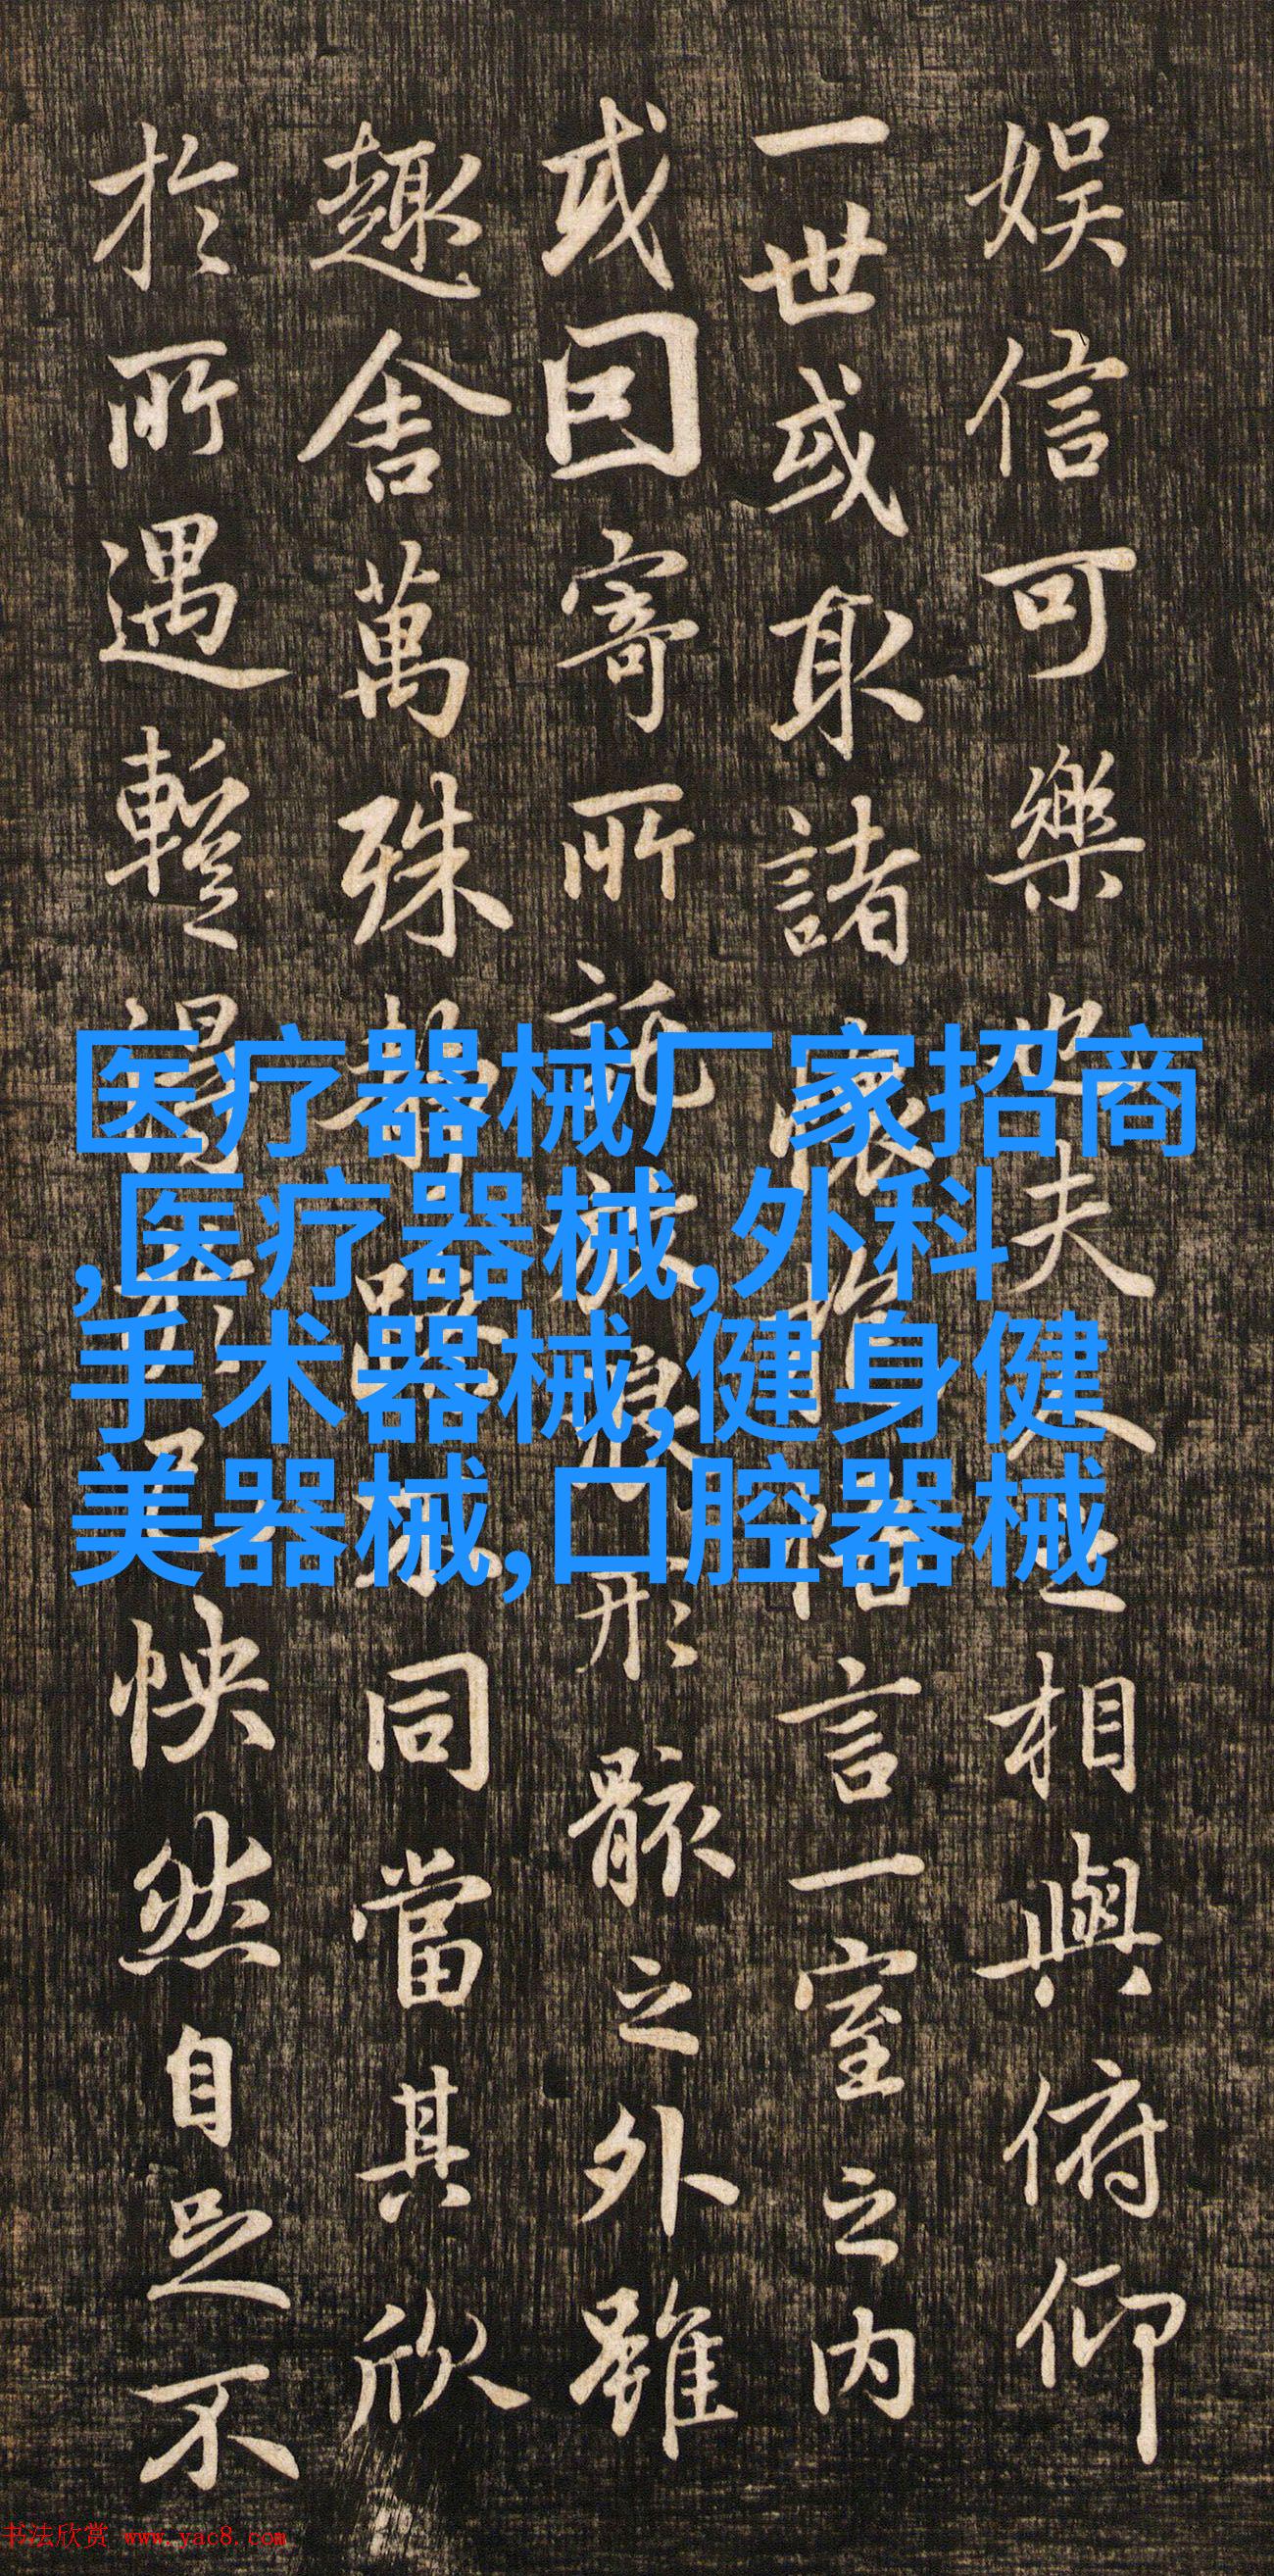 娱信可樂也夫人之相與俯仰
一世或取諸懷抱悟言一室之内
或因寄所託放浪形骸之外雖
趣舍萬殊静躁不同當其欣
於所遇暫得於己怏然自足不
医疗器械厂家招商
,医疗器械,外科
手术器械,健身健
美器械,口腔器械
书法欣赏 www.yac8.com